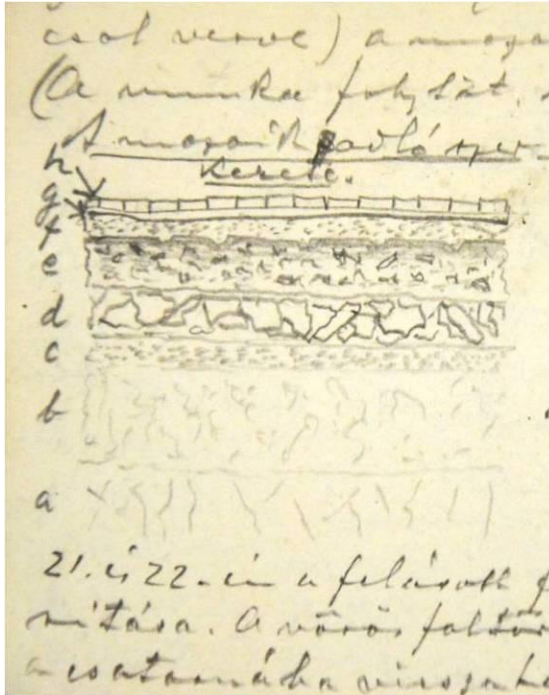 csol verve) a moza
(A munka folytat.
A mozaikpadló szer-
kezete.
h
g
f
e
d
c
b
a
21. és 22-én a felásott f
nítása. A vörös faltör
a csatornába vissza